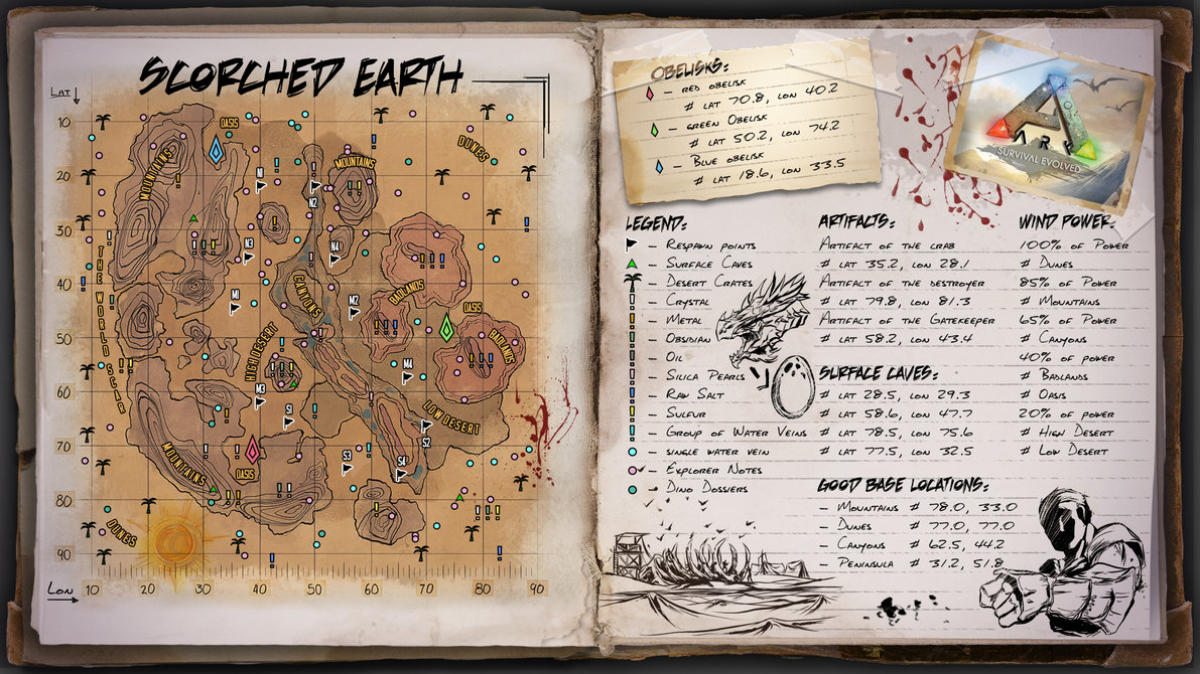 SCORCHED EARTH
LAT
10
20
30
40
50
60
70
80
90
LON
10
20
30
40
50
60
70
80
90
OASIS
MOUNTAINS
MOUNTAINS
DUNES
N1
N2
N3
N4
THE WORLD SCAR
M1
M2
CANYONS
BADLANDS
OASIS
BADLANDS
HIGH DESERT
M3
M4
S1
LOW DESERT
S2
MOUNTAINS
OASIS
S3
S4
DUNES
OBELISKS:
– RED OBELISK
# LAT 70.8, LON 40.2
– GREEN OBELISK
# LAT 50.2, LON 74.2
– BLUE OBELISK
# LAT 18.6, LON 33.5
ARK
SURVIVAL EVOLVED
LEGEND:
– RESPAWN POINTS
– SURFACE CAVES
– DESERT CRATES
– CRYSTAL
– METAL
– OBSIDIAN
– OIL
– SILICA PEARLS
– RAW SALT
– SULFUR
– GROUP OF WATER VEINS
– SINGLE WATER VEIN
– EXPLORER NOTES
– DINO DOSSIERS
ARTIFACTS:
ARTIFACT OF THE CRAB
# LAT 35.2, LON 28.1
ARTIFACT OF THE DESTROYER
# LAT 79.8, LON 81.3
ARTIFACT OF THE GATEKEEPER
# LAT 58.2, LON 43.4
SURFACE CAVES:
# LAT 28.5, LON 29.3
# LAT 58.6, LON 47.7
# LAT 78.5, LON 75.6
# LAT 77.5, LON 32.5
GOOD BASE LOCATIONS:
– MOUNTAINS # 78.0, 33.0
– DUNES # 77.0, 77.0
– CANYONS # 62.5, 44.2
– PENINSULA # 31.2, 51.8
WIND POWER:
100% OF POWER
# DUNES
85% OF POWER
# MOUNTAINS
65% OF POWER
# CANYONS
40% OF POWER
# BADLANDS
# OASIS
20% OF POWER
# HIGH DESERT
# LOW DESERT